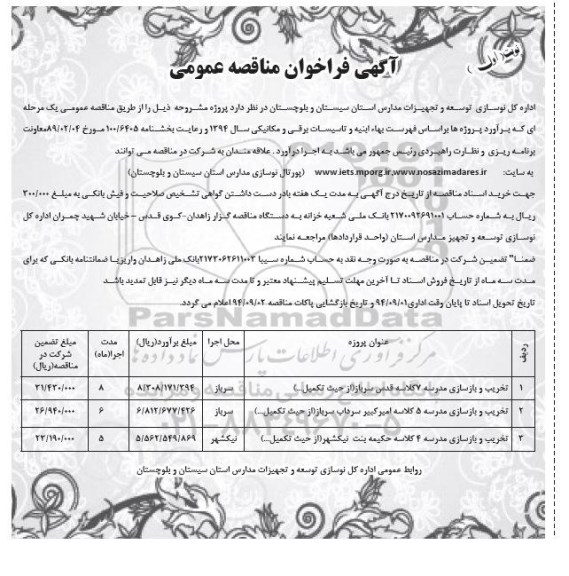 نوبت اول
آگهی فراخوان مناقصه عمومی
اداره کل نوسازی توسعه و تجهیزات مدارس استان سیستان و بلوچستان در نظر دارد پروژه مشروحه ذیل را از طریق مناقصه عمومی یک مرحله
ای که برآورد پروژه ها براساس فهرست بهاء ابنیه و تاسیسات برقی و مکانیکی سال ۱۳۹۴ و رعایت بخشنامه ۱۰۰/۶۴۰۵ مورخ ۸۹/۰۲/۰۴معاونت
برنامه ریزی و نظارت راهبردی رئیس جمهور می باشد به اجرا درآورد. علاقه مندان به شرکت در مناقصه می توانند
به سایت: www.iets.mporg.ir,www.nosazimadares.ir (پورتال نوسازی مدارس استان سیستان و بلوچستان)
جهت خرید اسناد مناقصه از تاریخ درج آگهی به مدت یک هفته بادر دست داشتن گواهی تشخیص صلاحیت و فیش بانکی به مبلغ ۳۰۰/۰۰۰
ریال به شماره حساب ۲۱۷۰۰۹۲۶۹۱۰۰۱ بانک ملی شعبه خزانه به دستگاه مناقصه گزار زاهدان-کوی قدس – خیابان شهید چمران اداره کل
نوسازی توسعه و تجهیز مدارس استان (واحد قراردادها) مراجعه نمایند
ضمنا" تضمین شرکت در مناقصه به صورت وجه نقد به حساب شماره سیبا ۲۱۷۳۰۶۲۶۱۱۰۰۲بانک ملی زاهدان واریز یا ضمانتنامه بانکی که برای
مدت سه ماه از تاریخ فروش اسناد تا آخرین مهلت تسلیم پیشنهاد معتبر و تا مدت سه ماه دیگر نیز قابل تمدید باشد
تاریخ تحویل اسناد تا پایان وقت اداری۹۴/۰۹/۰۱ و تاریخ بازگشایی پاکات مناقصه ۹۴/۰۹/۰۲ اعلام می گردد.
ردیف عنوان پروژه محل اجرا مبلغ برآورد(ریال) مدت اجرا(ماه) مبلغ تضمین شرکت در مناقصه(ریال)
۱ تخریب و بازسازی مدرسه ۷کلاسه قدس سرباز(از حیث تکمیل...) سرباز ۸/۳۰۸/۱۷۱/۲۹۴ ۸ ۳۱/۴۳۰/۰۰۰
۲ تخریب و بازسازی مدرسه ۵ کلاسه امیرکبیر سرداب سرباز(از حیث تکمیل...) سرباز ۶/۸۱۲/۶۷۷/۴۲۶ ۶ ۲۶/۹۴۰/۰۰۰
۳ تخریب و بازسازی مدرسه ۴ کلاسه حکیمه بنت نیکشهر(از حیث تکمیل...) نیکشهر ۵/۵۶۲/۵۴۹/۸۶۹ ۵ ۲۳/۱۹۰/۰۰۰
روابط عمومی اداره کل نوسازی توسعه و تجهیزات مدارس استان سیستان و بلوچستان
ParsNamadData
مرکز فرآوری اطلاعات پارس نماد داده ها
۰۲۱-۸۸۳۴۹۶۷۰-۵